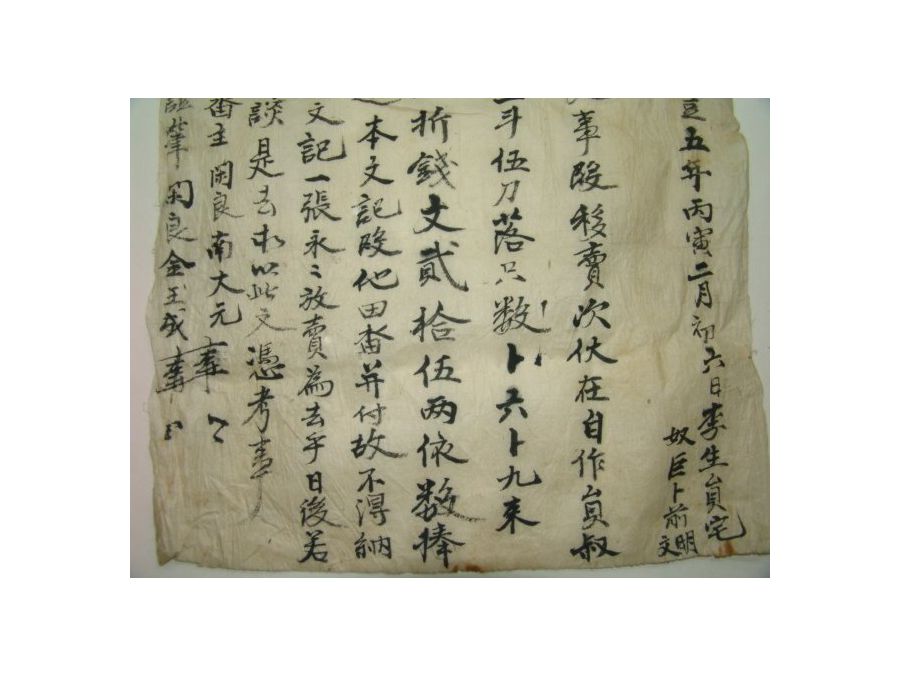 五年丙寅二月初六日李生員宅
奴巨卜前明
文
事段移賣次伏在自作員叔
斗伍刀落只数卜六卜九束
折錢文貳拾伍両依数捧
本文記段他田畓并付故不淂納
文記一張永〻放賣為去乎日後若
談是去求以此文憑考事
畓主閑良南大元
筆閑良金玉成